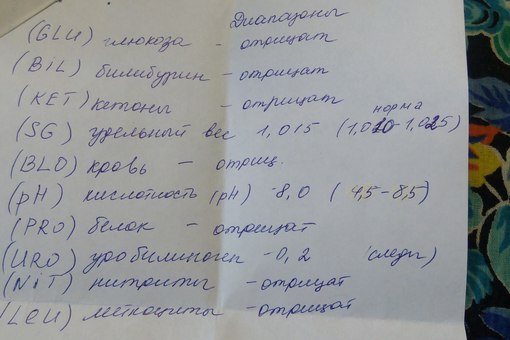 Диапазоны
(GLU) глюкоза - отрицат
(BiL) билибурин - отрицат
(KET) кетоны - отрицат
норма
(SG) удельный вес 1,015 (1,010-1,025)
(BLD) кровь - отриц.
(pH) кислотность (pH) -8,0 (4,5-8,5)
(PRO) белок - отрицат
(URO) уробилиноген -0,2 (следы)
(NiT) нитриты - отрицат
(LEU) лейкоциты - отрицат